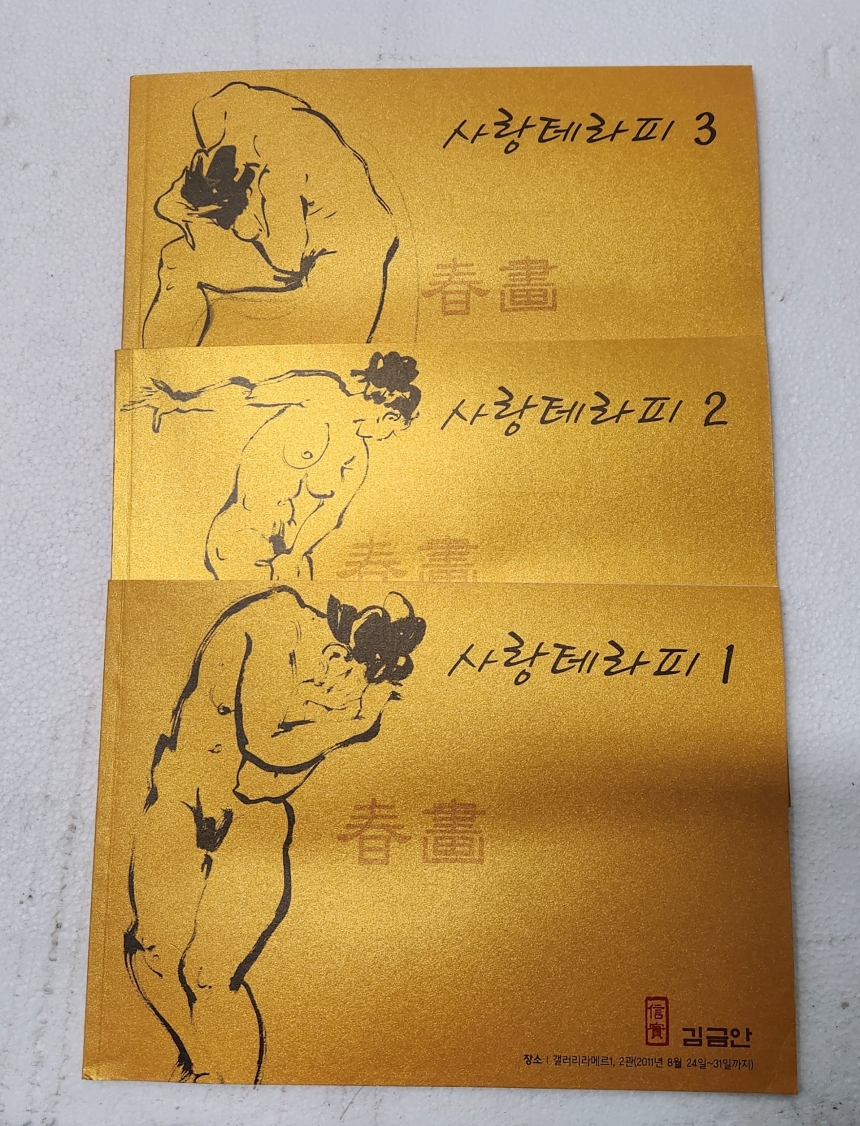 사랑테라피 3
春畫
사랑테라피 2
春畫
사랑테라피 1
春畫
信實
김금안
장소 | 갤러리라메르1, 2관(2011년 8월 24일~31일까지)